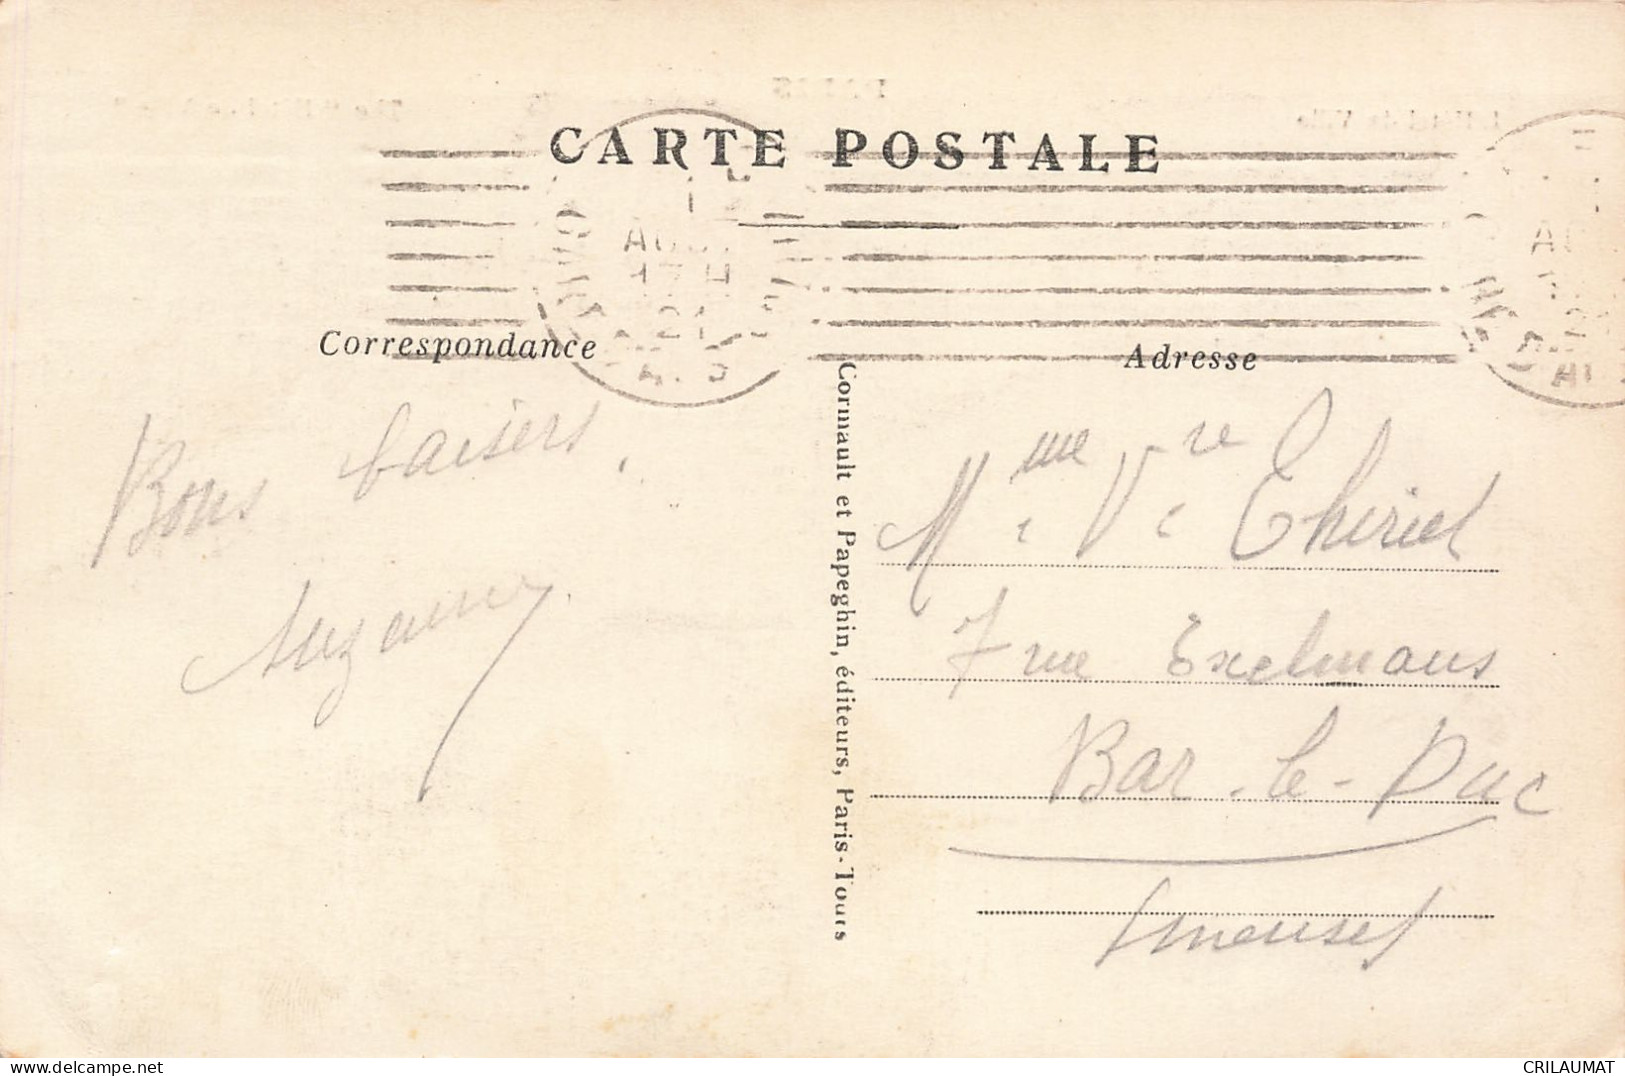 CARTE POSTALE
Correspondance
Adresse
Bons baisers.
Suzanne
Cormault et Papeghin, éditeurs, Paris-Tours
Mme Vve Thiriet
7 rue Exelmans
Bar-le-Duc
(Meuse)
www.delcampe.net
CRILAUMAT